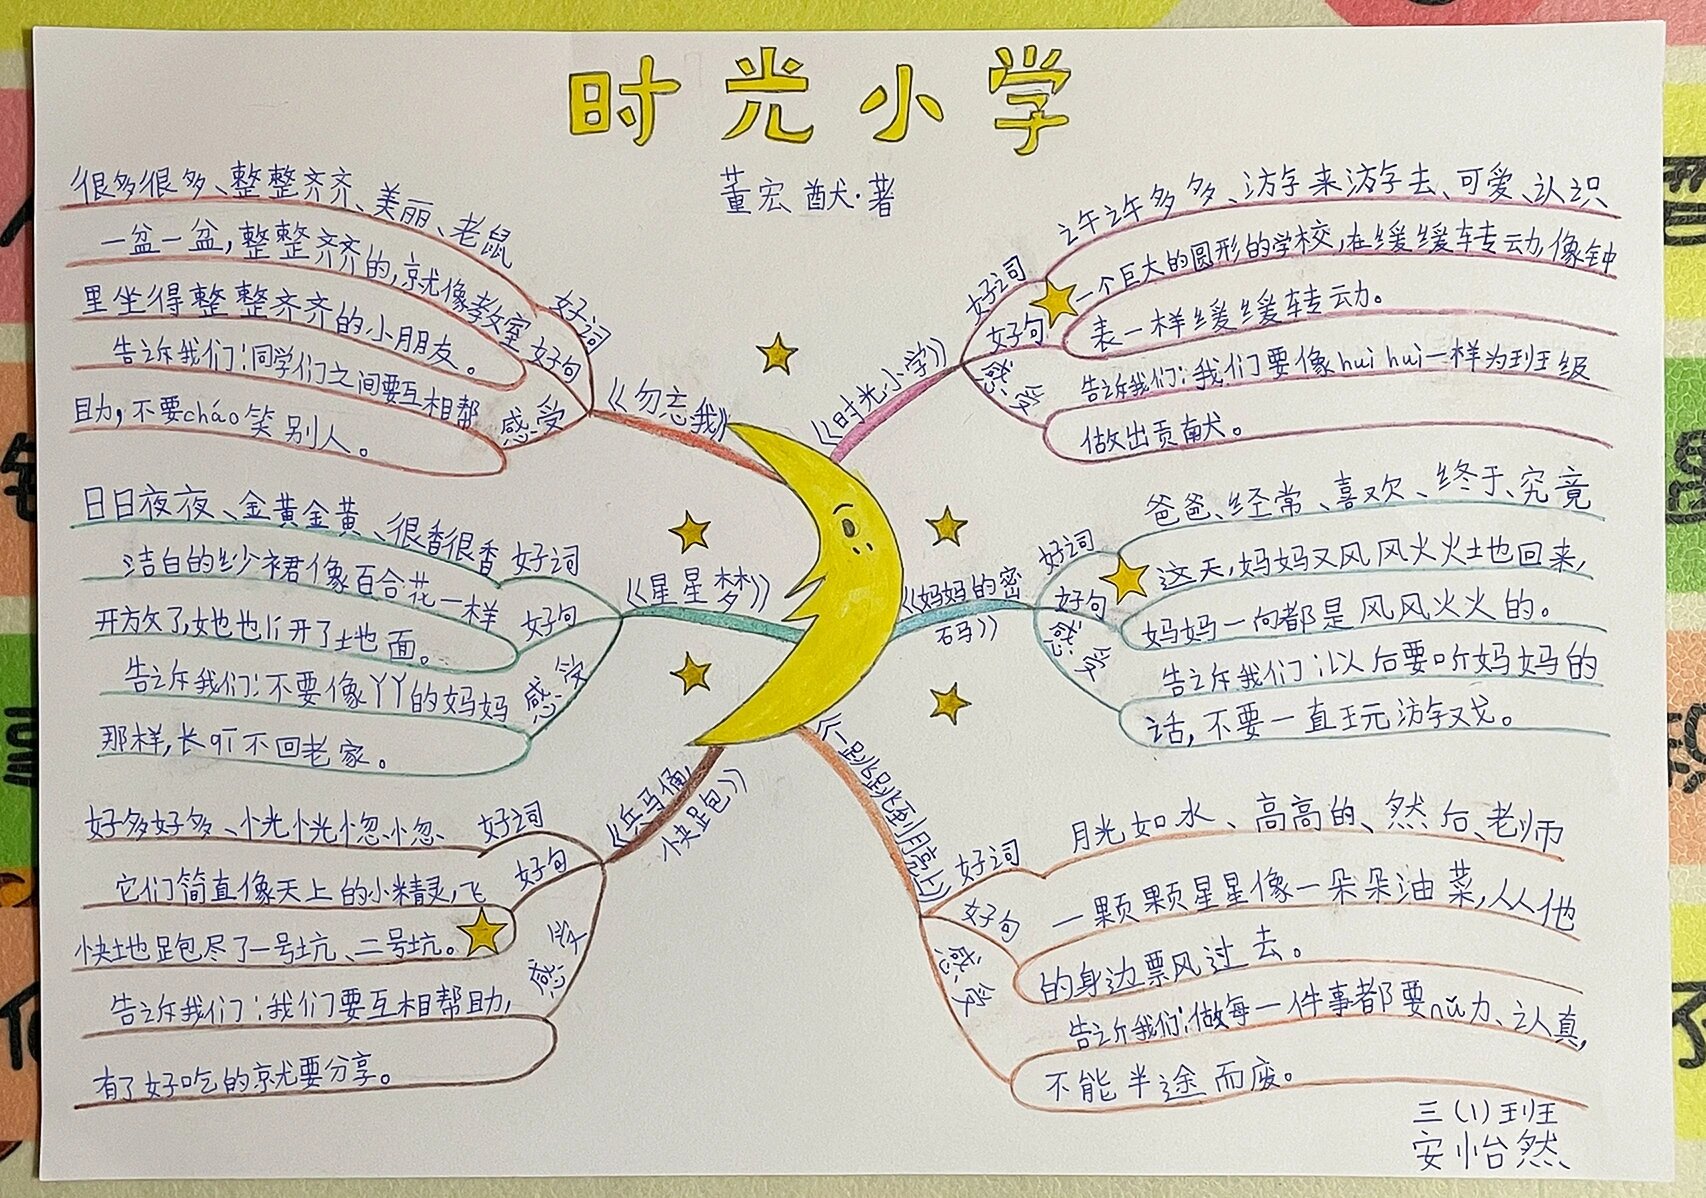 时光小学
董宏猷·著
很多很多、整整齐齐、美丽、老鼠
好词
一盆一盆,整整齐齐的,就像教室
里坐得整整齐齐的小朋友。
好句
告诉我们:同学们之间要互相帮
助,不要cháo笑别人。
感受
《勿忘我》
日日夜夜、金黄金黄、很香很香
好词
洁白的纱裙像百合花一样
开放了,她也lí开了地面。
好句
告诉我们:不要像丫丫的妈妈
那样,长吁不回老家。
感受
《星星梦》
好多好多、恍恍惚惚
好词
它们简直像天上的小精灵,飞
快地跑尽了一号坑、二号坑。
好句
告诉我们:我们要互相帮助,
有了好吃的就要分享。
感受
《兵马俑,
快跑》
《时光小学》
好词
许许多多、游来游去、可爱、认识
好句
一个巨大的圆形的学校,在缓缓转动,像钟
表一样缓缓转动。
感受
告诉我们:我们要像hui hui一样为班级
做出贡献。
《妈妈的密
码》
好词
爸爸、经常、喜欢、终于、究竟
好句
这天,妈妈又风风火火地回来,
妈妈一向都是风风火火的。
感受
告诉我们:以后要听妈妈的
话,不要一直玩游戏。
《一跳跳到月亮上》
好词
月光如水、高高的、然后、老师
好句
一颗颗星星像一朵朵油菜,从他
的身边飘过去。
感受
告诉我们:做每一件事都要nǔ力、认真,
不能半途而废。
三(1)班
安怡然